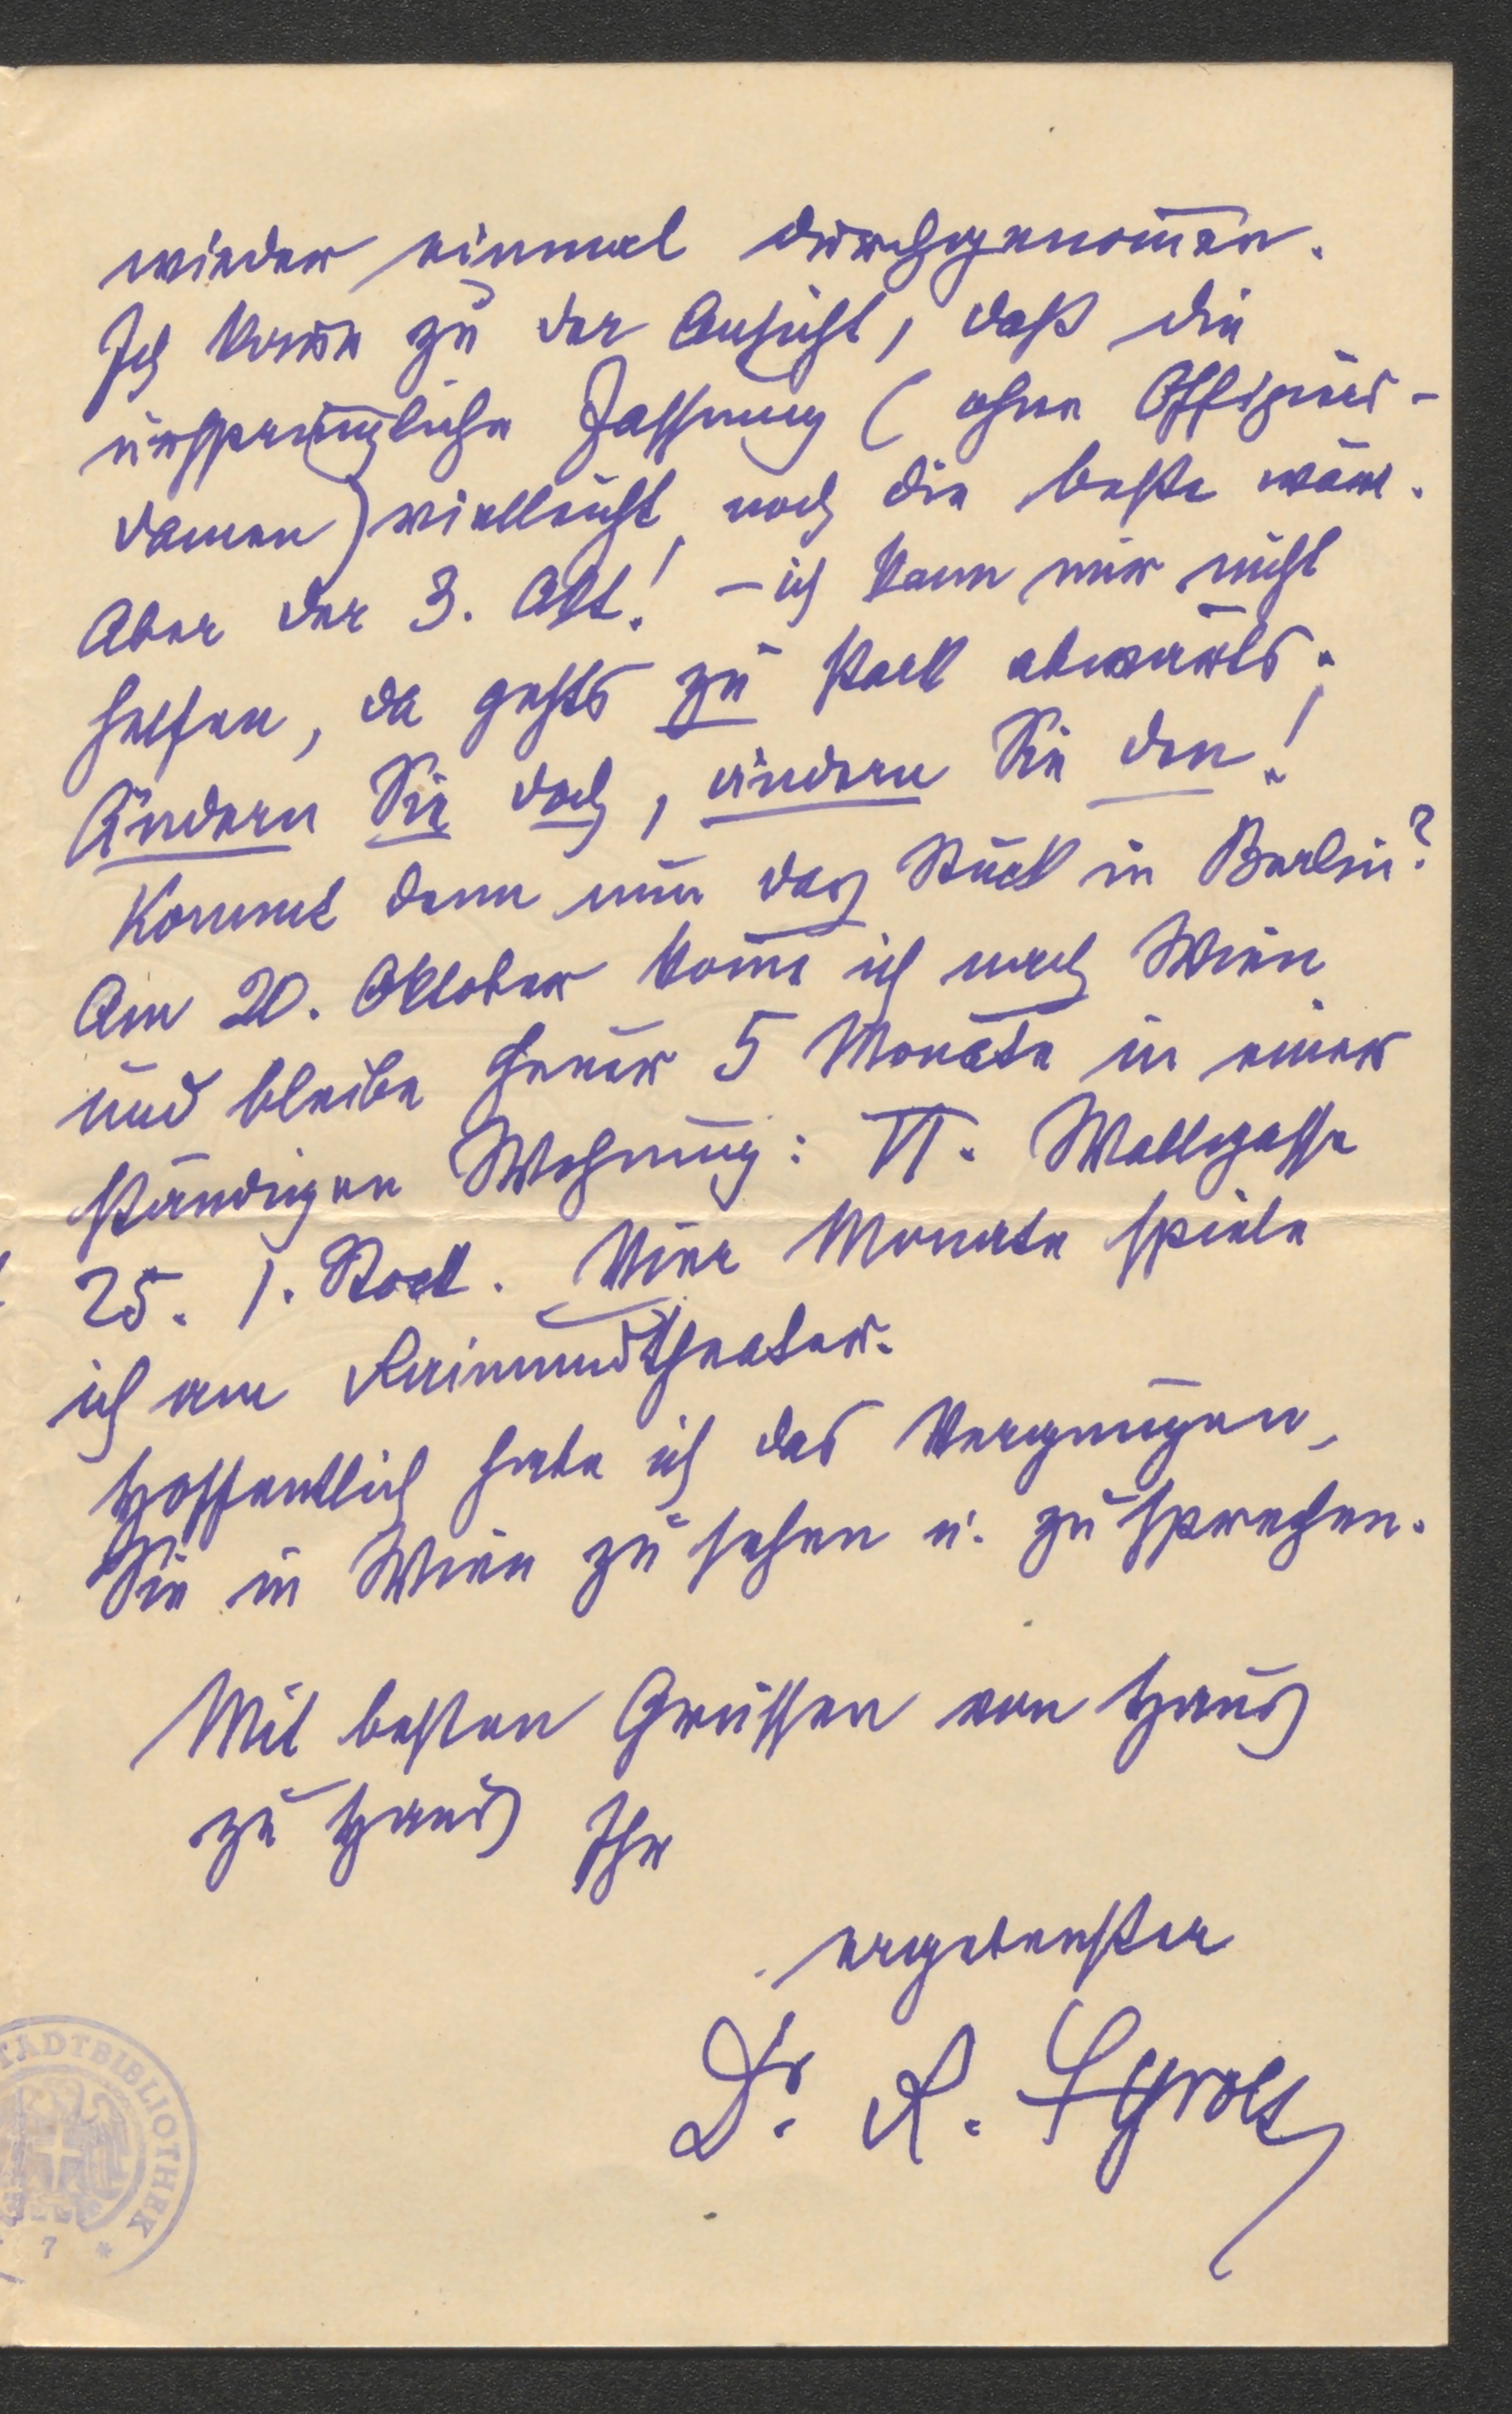 wieder einmal durchgenom̄en.
Ich kom̄e zu der Ansicht, daß die
ursprüngliche Fassung (ohne Offiziers-
damen) vielleicht noch die beste wäre.
Aber der 3. Akt! – ich kann mir nicht
helfen, da gehts zu stark abwärts.
Ändern Sie doch, ändern Sie den!
Kommt denn nun das Stück in Berlin?
Am 20. Oktober kom̄e ich nach Wien
und bleibe heuer 5 Monate in einer
ständigen Wohnung: VI. Wallgasse
25. 1. Stock. Vier Monate spiele
ich am Raimundtheater.
Hoffentlich habe ich das Vergnügen,
Sie in Wien zu sehen u. zu sprechen.
Mit besten Grüssen von Haus
zu Haus Ihr
ergebenster
Dr. R. Tyrolt
STADTBIBLIOTHEK
7 *